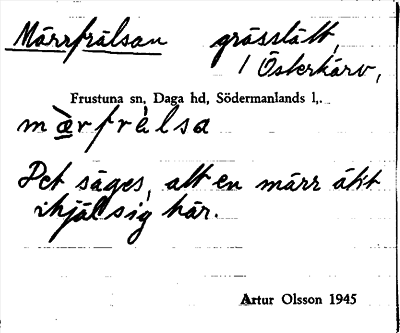 Märrfrälsan grässlått,
i Österkärv,
Frustuna sn, Daga hd, Södermanlands l,.
mæ̀rfrèlsa
Det säges, att en märr åkt
ihjäl sig här.
Artur Olsson 1945